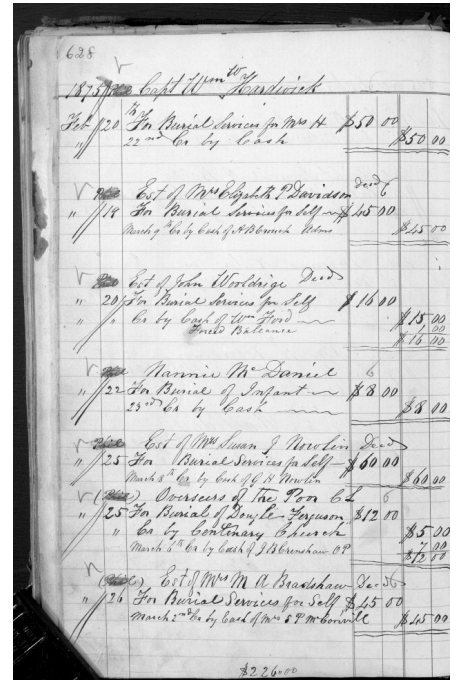 628
1875 Capt Wm to Hardwick
Feb 20th For Burial Services for Mrs H $50 00
22nd Cr by Cash $50 00
Est of Mrs Elizabeth P Davidson Decd 6
" 19 For Burial Services for Self $45 00
March 9th Cr by Cash of A B Crouch Adms $45 00
Est of John Wooldrige Decd
" 20 For Burial Services for Self $16 00
" " Cr by Cash of Wm Ford $15 00
Balance 1 00
$16 00
Nannie Mc Daniel 6
" 22 For Burial of Infant $8 00
23rd Cr by Cash $8 00
Est of Mrs Susan J Nowlin Decd
" 25 For Burial Services for Self $60 00
March 8th Cr by Cash of G H Nowlin $60 00
Overseers of the Poor 6
" 25 For Burial of Ferguson $12 00
" Cr by Centinary Church $5 00
March 6th Cr by Cash of J B Crenshaw O P 7 00
$12 00
Est of Mrs M A Bradshaw Decd 6
" 26 For Burial Services for Self $45 00
March 2nd Cr by Cash of Mrs S P McConvill $45 00
$226.00